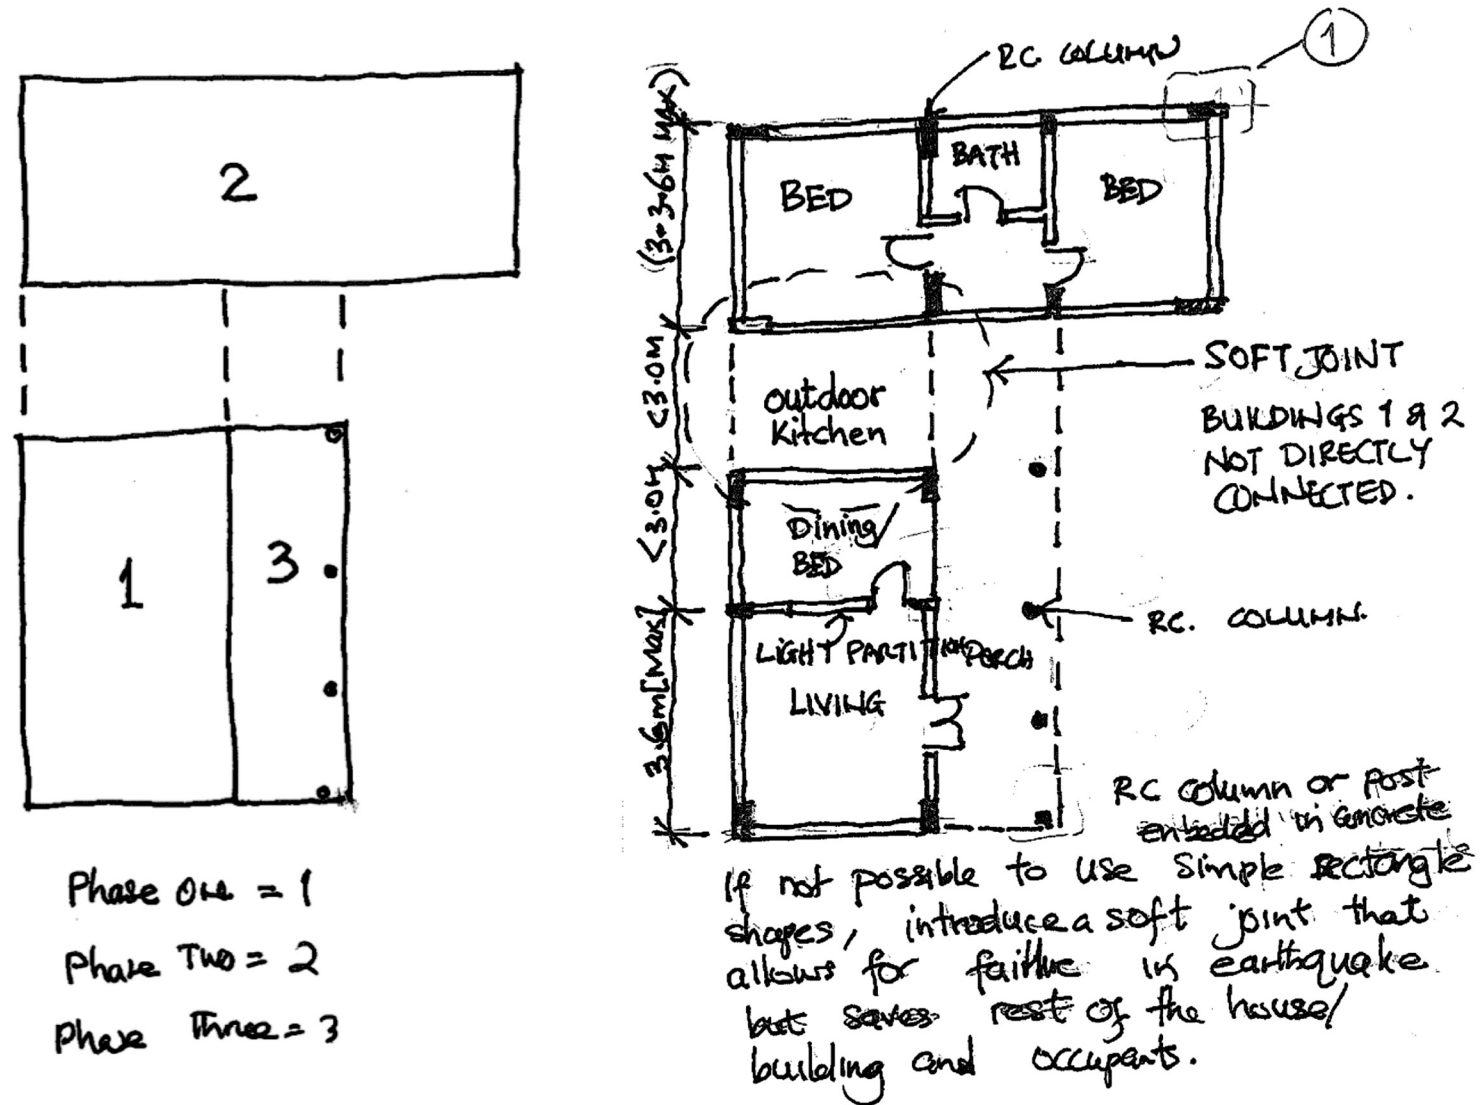 2
1
3
Phase One = 1
Phase Two = 2
Phase Three = 3
RC COLUMN
1
(3-3.6M MAX)
<3.0M
<3.0M
3.6m[Max]
BED
BATH
BED
outdoor
Kitchen
SOFT JOINT
BUILDINGS 1 & 2
NOT DIRECTLY
CONNECTED.
Dining/
BED
LIGHT PARTITION
PORCH
LIVING
RC. COLUMN.
RC column or Post
embedded in concrete
If not possible to use simple rectangle
shapes, introduce a soft joint that
allows for failure in earthquake
but saves rest of the house/
building and occupants.